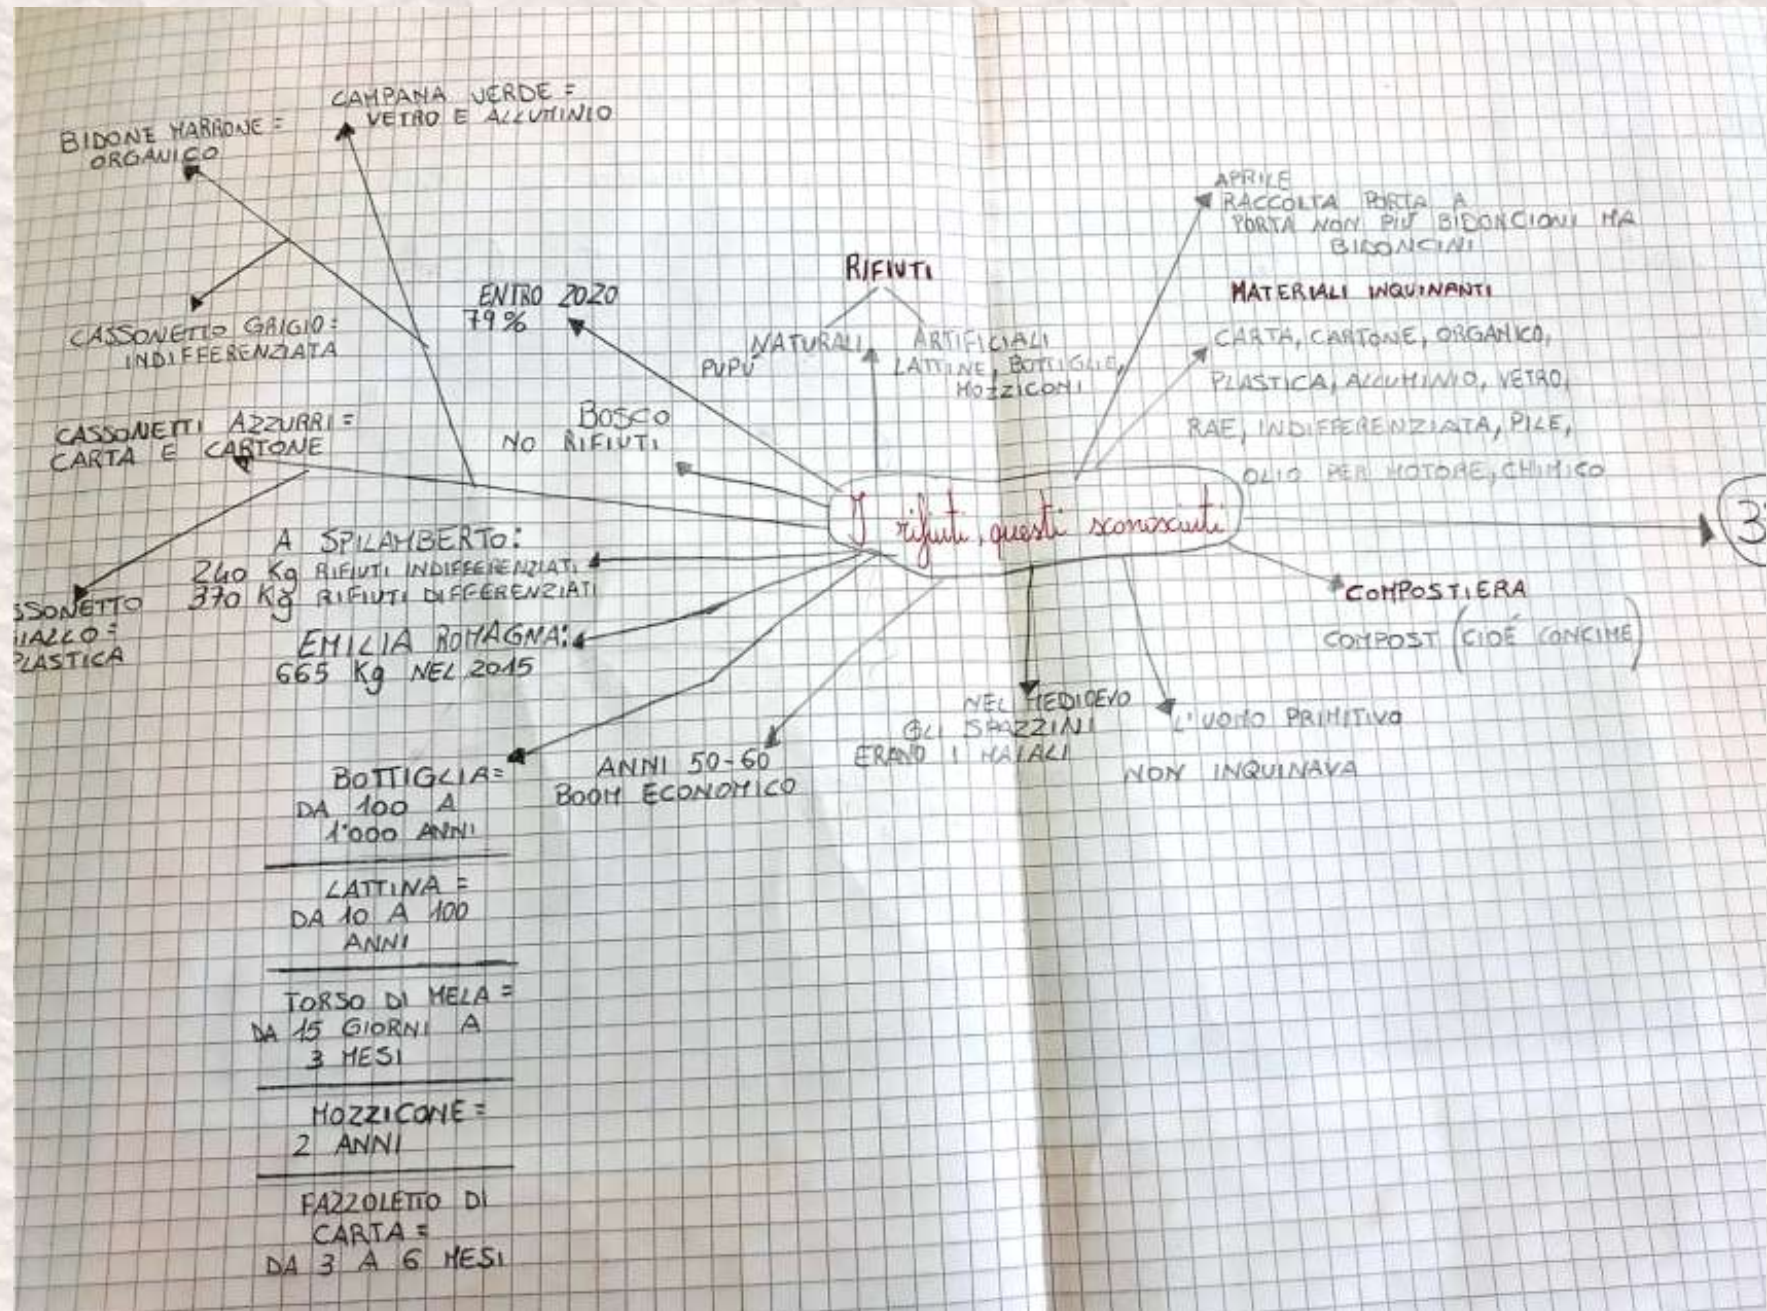 CAMPANA VERDE =
VETRO E ALLUMINIO
BIDONE MARRONE =
ORGANICO
CASSONETTO GRIGIO =
INDIFFERENZIATA
CASSONETTI AZZURRI =
CARTA E CARTONE
SSONETTO
IALLO =
PLASTICA
ENTRO 2020
79%
BOSCO
NO RIFIUTI
RIFIUTI
NATURALI
PUPÙ
ARTIFICIALI
LATTINE, BOTTIGLIE,
MOZZICONI
APRILE
RACCOLTA PORTA A
PORTA NON PIÙ BIDONCIONI MA
BIDONCINI
MATERIALI INQUINANTI
CARTA, CARTONE, ORGANICO,
PLASTICA, ALLUMINIO, VETRO,
RAE, INDIFFERENZIATA, PILE,
OLIO PER MOTORE, CHIMICO
I rifiuti, questi sconosciuti
3
A SPILAMBERTO:
240 Kg RIFIUTI INDIFFERENZIATI
370 Kg RIFIUTI DIFFERENZIATI
EMILIA ROMAGNA:
665 Kg NEL 2015
COMPOSTIERA
COMPOST (CIOÉ CONCIME)
L'UOMO PRIMITIVO
NON INQUINAVA
NEL MEDIOEVO
GLI SPAZZINI
ERANO I MAIALI
ANNI 50-60
BOOM ECONOMICO
BOTTIGLIA =
DA 100 A
1'000 ANNI
LATTINA =
DA 10 A 100
ANNI
TORSO DI MELA =
DA 15 GIORNI A
3 MESI
MOZZICONE =
2 ANNI
FAZZOLETTO DI
CARTA =
DA 3 A 6 MESI